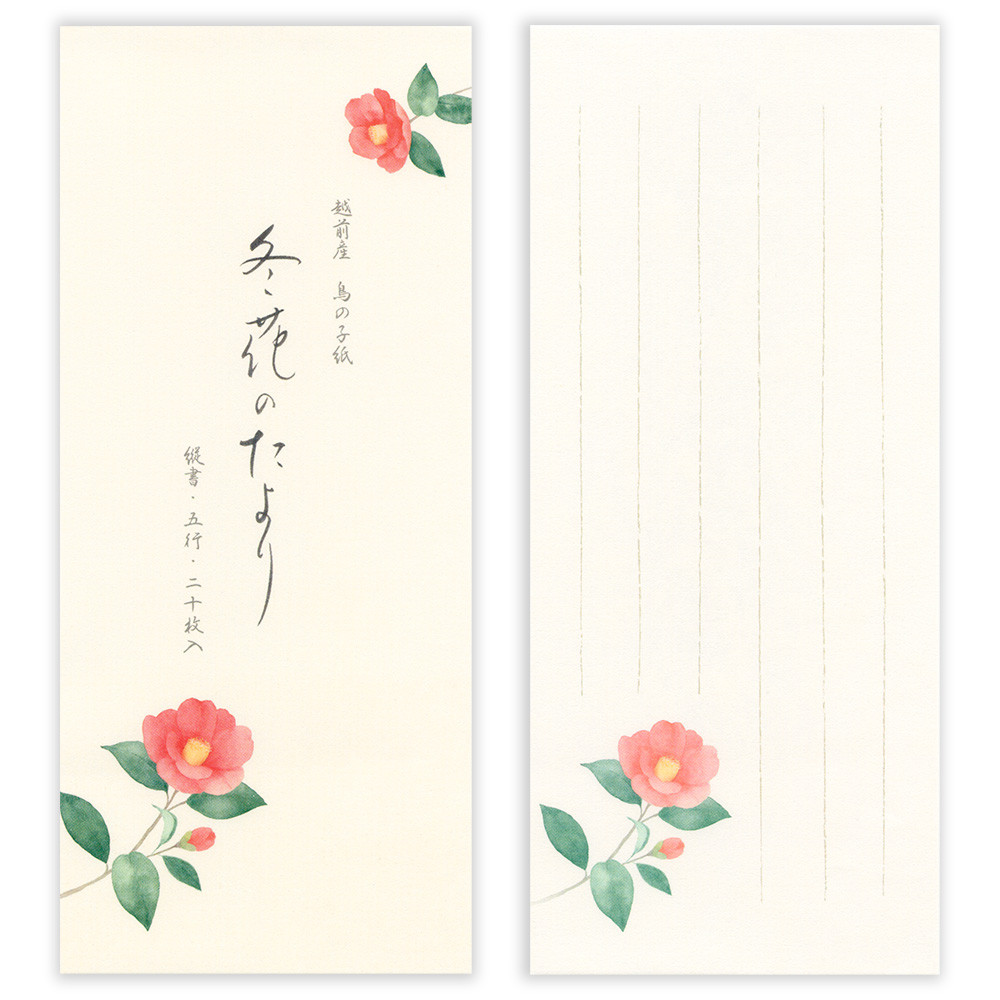 越前産　鳥の子紙
冬花のたより
縦書・五行・二十枚入